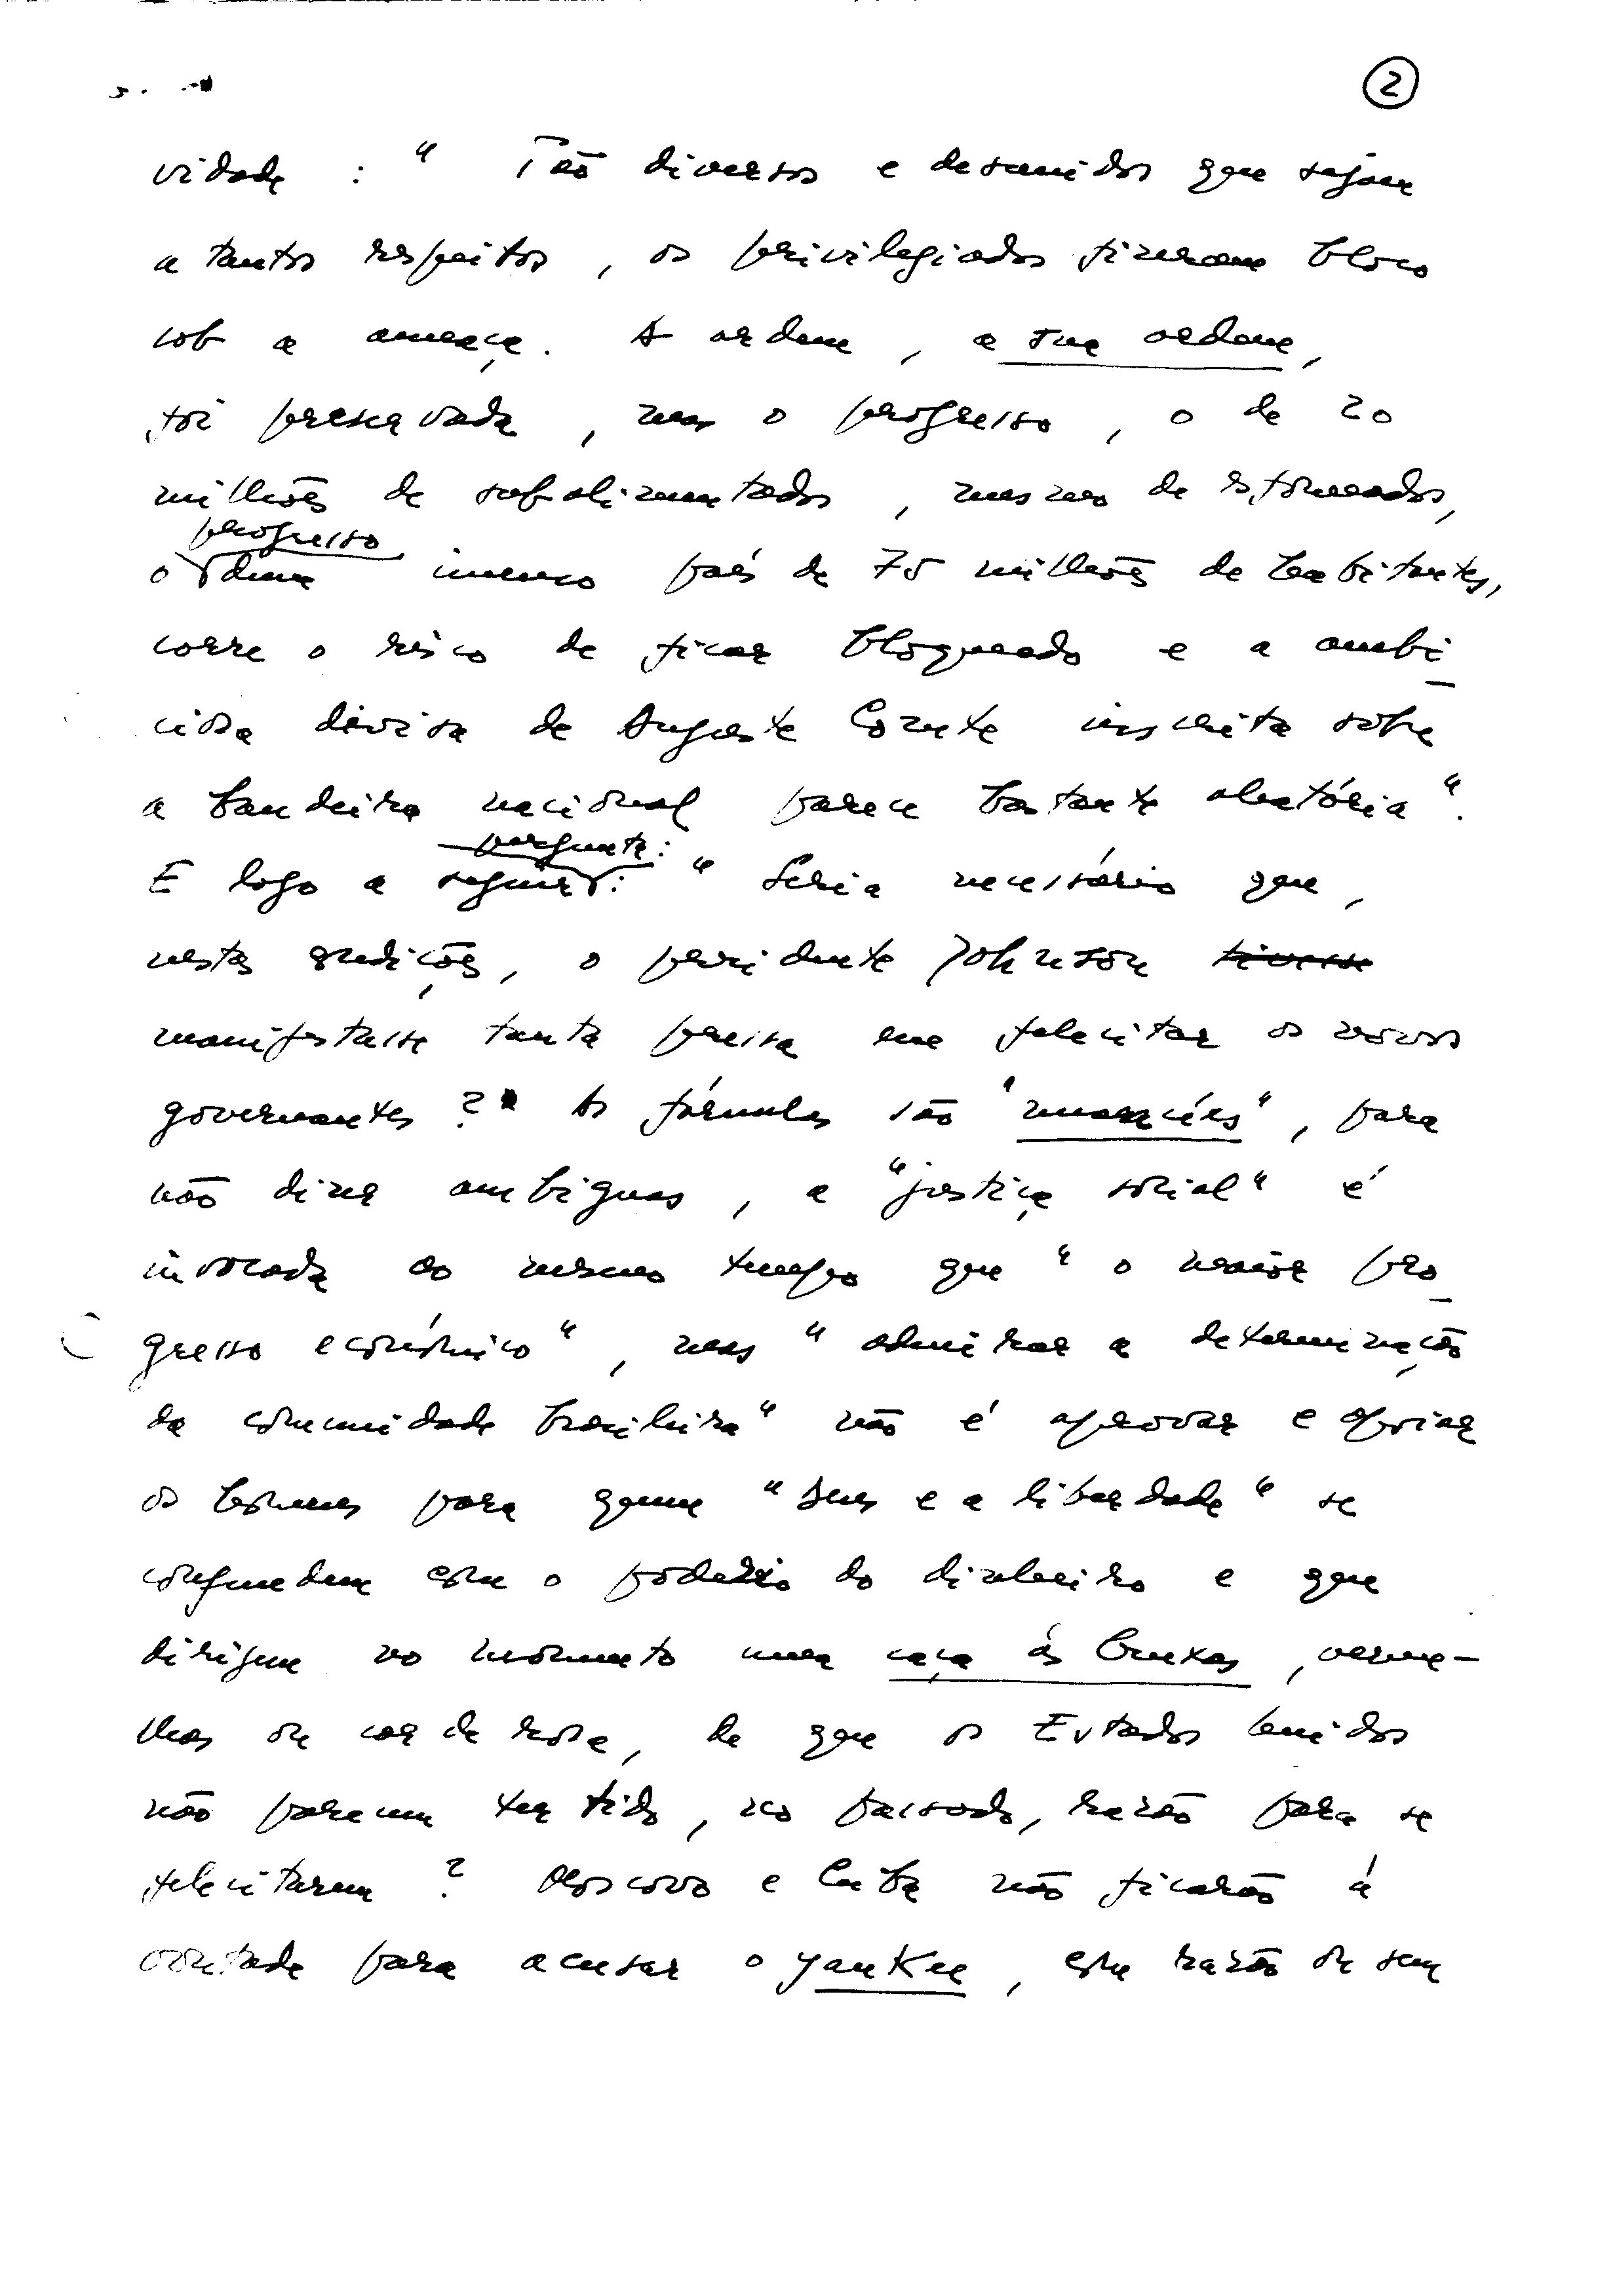 2
vidade : " Tão diversos e desunidos que sejam
a tantos respeitos, os privilegiados fizeram bloco
sob a ameaça. A ordem, a sua ordem,
foi preservada, mas o progresso, o de 20
milhões de subalimentados, mesmo de esfomeados,
progresso
o dum imenso país de 75 milhões de habitantes,
corre o risco de ficar bloqueado e a ambi-
ciosa divisa de Auguste Comte inscrita sobre
a bandeira nacional parece bastante aleatória".
pergunta:
E logo a seguir: " Seria necessário que,
nestas condições, o presidente Johnson tivesse
manifestasse tanta pressa em felicitar os novos
governantes ? As fórmulas são "nuancées", para
não dizer ambíguas, a "justiça social" é
invocada ao mesmo tempo que "o maior pro-
gresso económico", mas "admirar a determinação
da comunidade brasileira" não é aprovar e apoiar
os homens para quem "Deus e a liberdade" se
confundem com o poderio do dinheiro e que
dirigem no momento uma caça às bruxas, verme-
lhas ou cor de rosa, de que os Estados Unidos
não parecem ter tido, no passado, razão para se
felicitarem ? Moscovo e Cuba não ficarão à
vontade para acusar o yankee, com razão ou sem